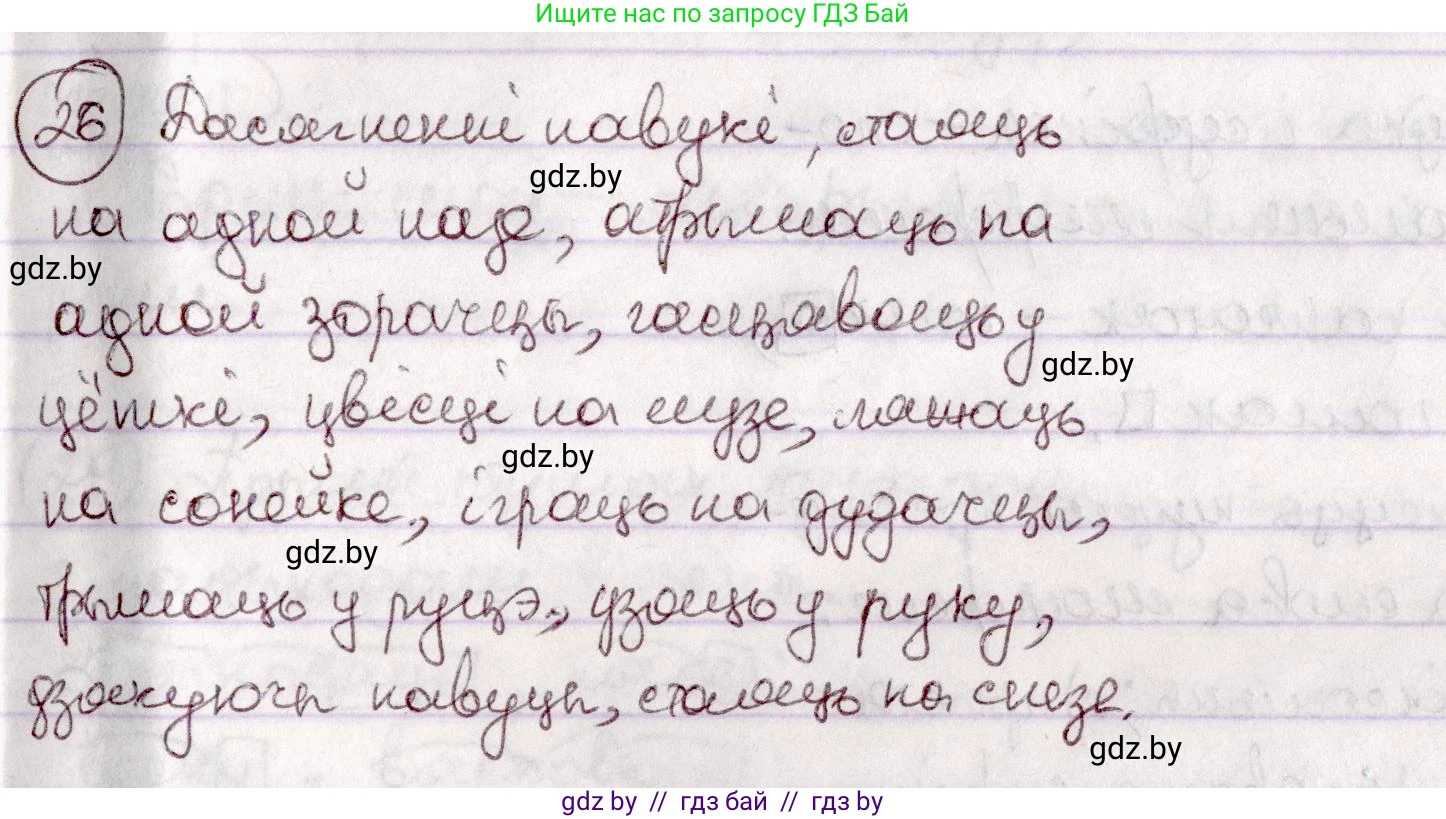 Ищите нас по запросу ГДЗ Бай
26 Дасягненні навукі, стаяць
gdz.by
на адной назе, атрымаць па
gdz.by
адной зорачцы, гасцяваць у
gdz.by
цёткі, цвісці на лузе, ляжаць
gdz.by
на сонейке, іграць на дудачцы,
gdz.by
трымаць у руцэ, узяць у руку,
дзякуючы навуцы, стаяць на снезе.
gdz.by
gdz by // гдз бай // гдз by